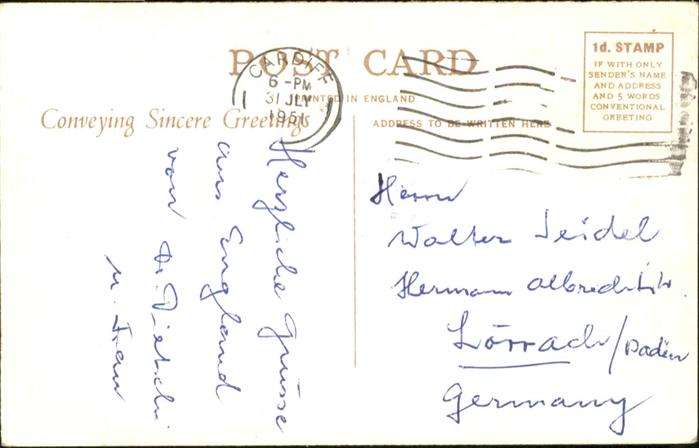 POST CARD
PRINTED IN ENGLAND
Conveying Sincere Greetings
ADDRESS TO BE WRITTEN HERE
1d. STAMP
IF WITH ONLY
SENDER'S NAME
AND ADDRESS
AND 5 WORDS
CONVENTIONAL
GREETING
CARDIFF
6 - PM
31 JLY
1951
Herzliche Grüsse
aus England
von Dr. Pietsch
u. Frau
Herrn
Walter Seidel
Hermann Albrechtstr.
Lörrach/Baden
Germany